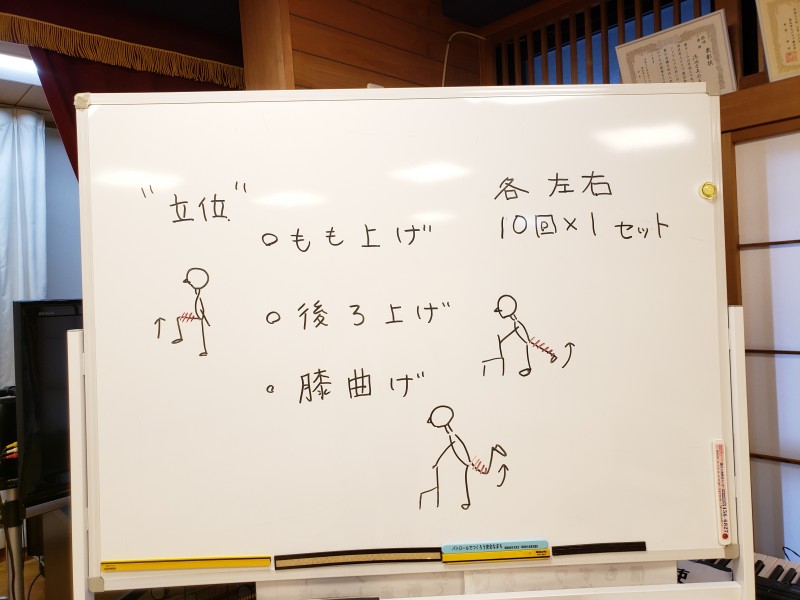 "立位"
各 左右
10回×1 セット
○もも上げ
○後ろ上げ
○膝曲げ